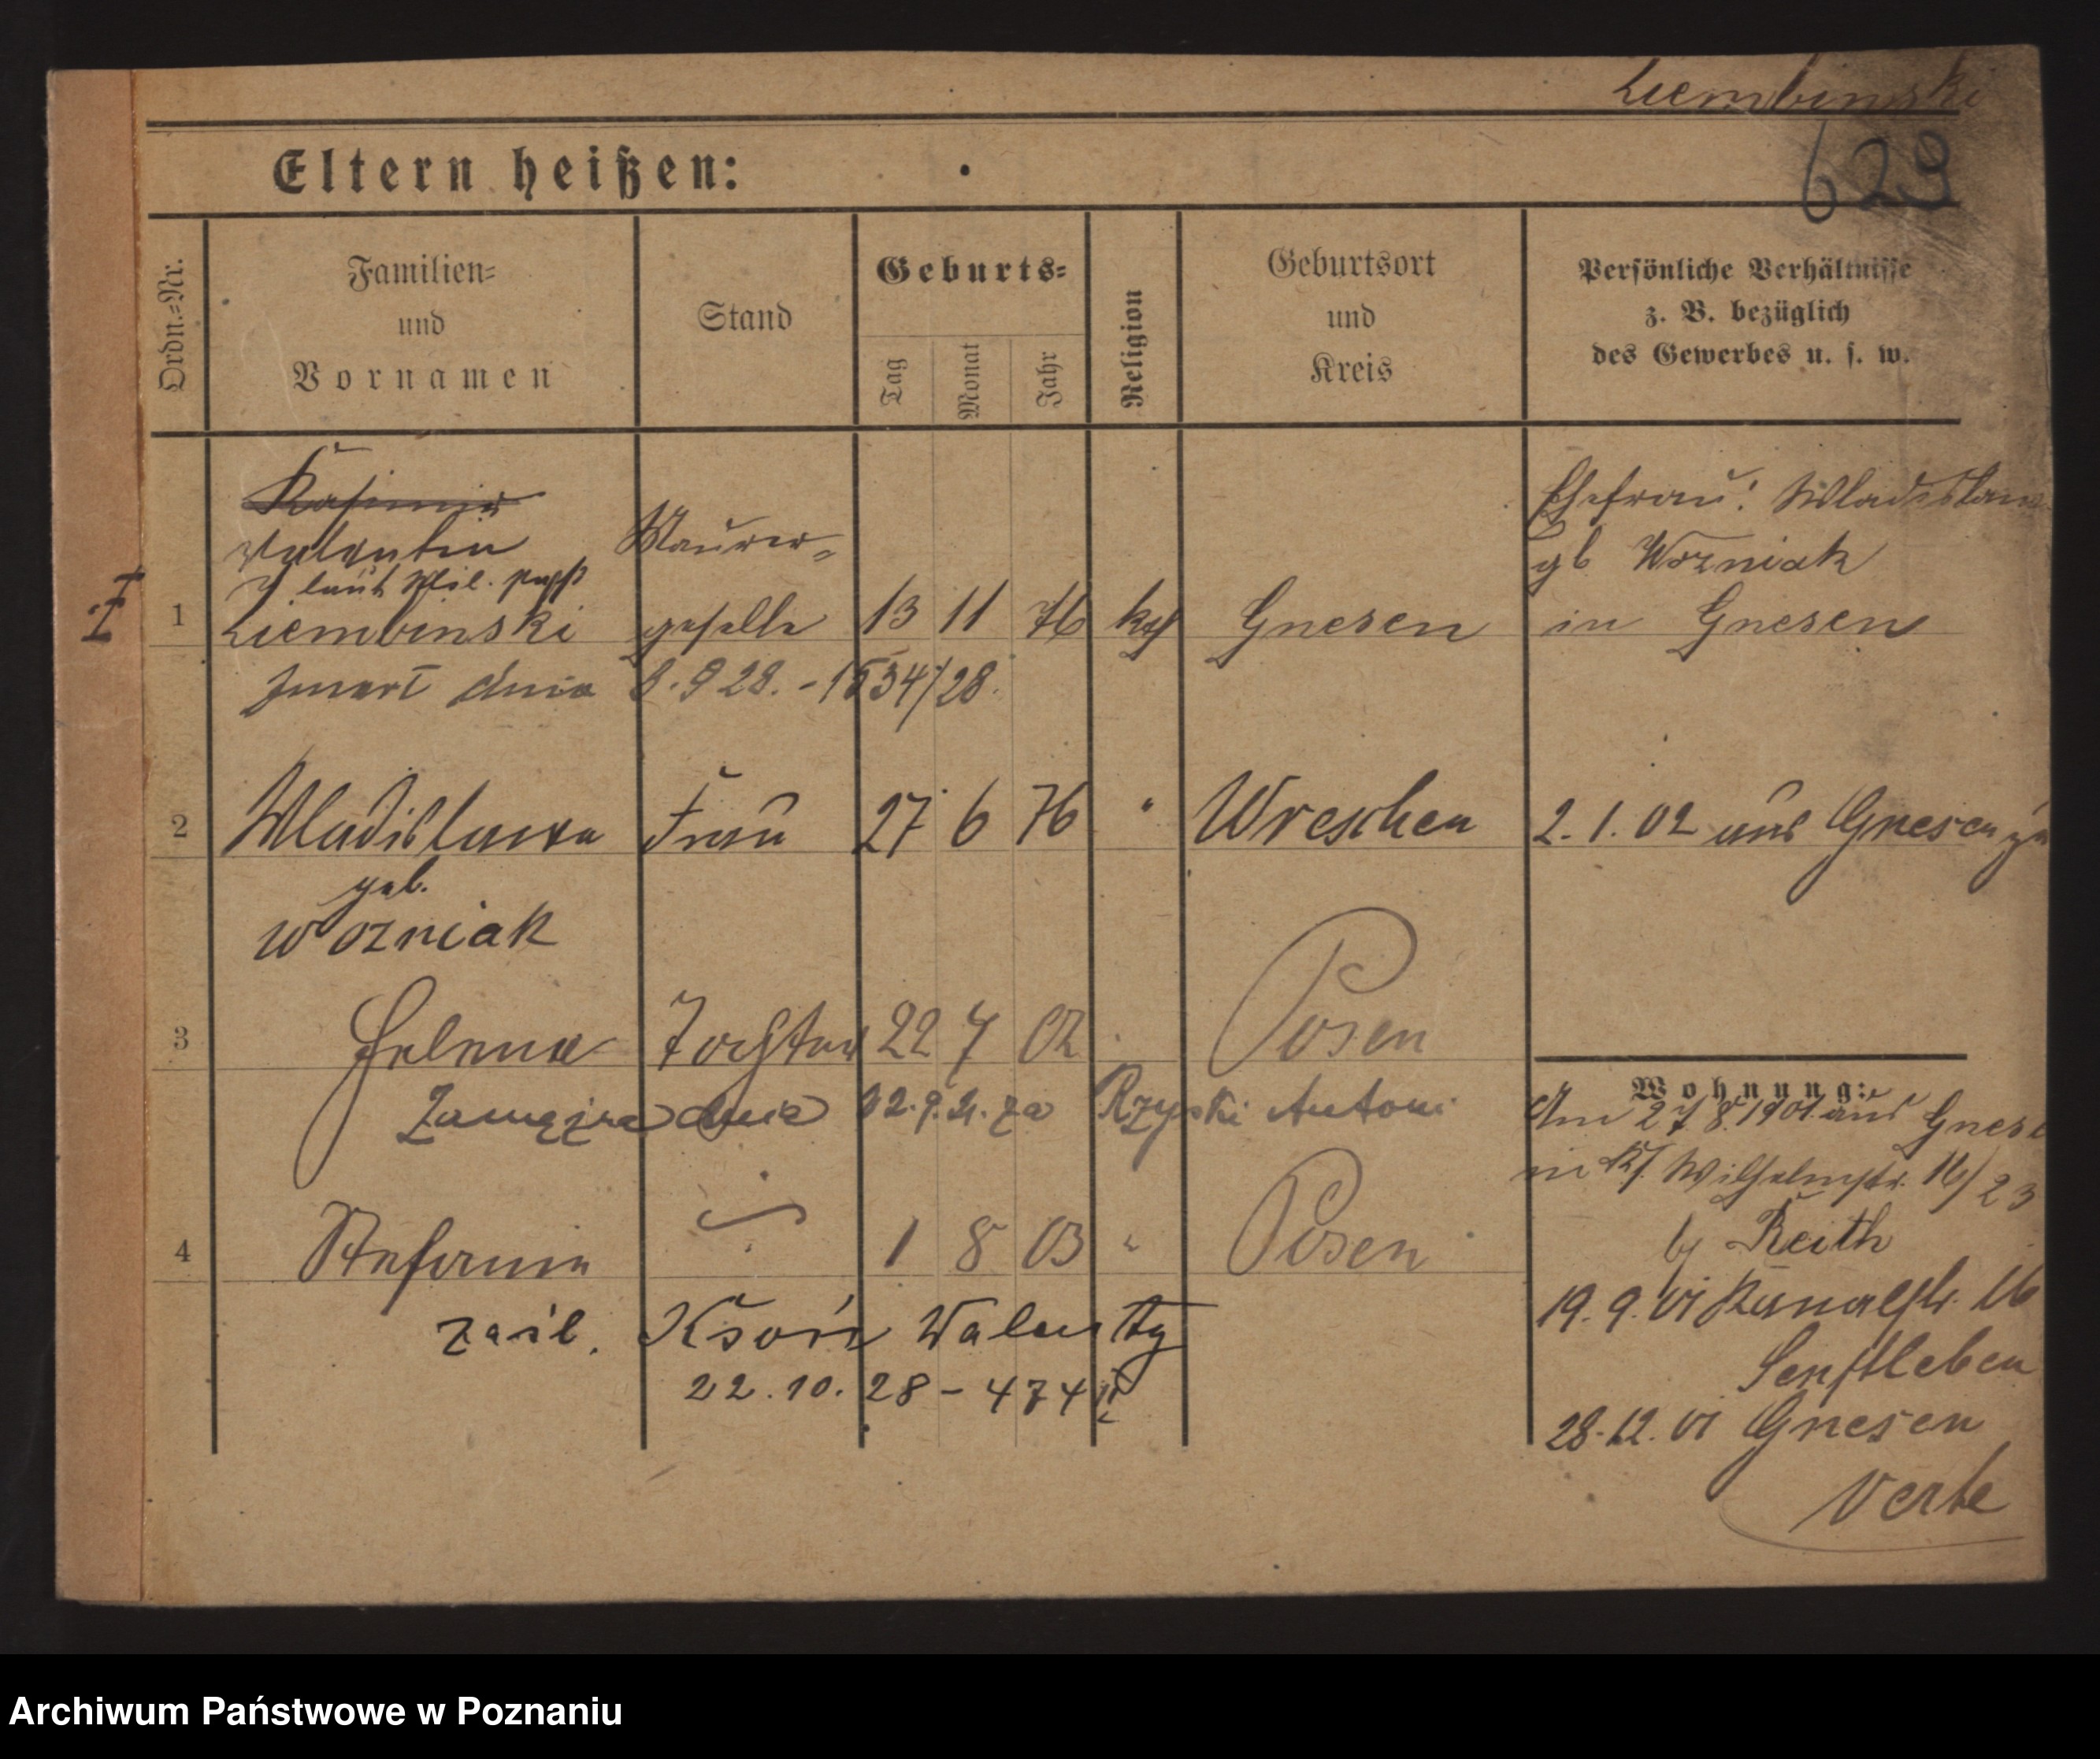 Ziembinski
629
Eltern heißen:
Ordn.-Nr.
Familien-
und
Vornamen
Stand
Geburts-
Tag
Monat
Jahr
Religion
Geburtsort
und
Kreis
Persönliche Verhältnisse
z. B. bezüglich
des Gewerbes u. s. w.
Kasimir
Valentin
laut Mil. papp
I 1 Ziembinski Maurer-geselle 13 11 76 kath Gnesen
Ehefrau: Wladislawa
gb Wozniak
in Gnesen
zmarł dnia 8.9 28. - 1534/28.
2 Wladislawa Frau 27 6 76 " Wreschen 2. 1. 02 aus Gnesen zu
geb.
Wozniak
3 Helena Tochter 22 7 02 Posen
Zamężna dnia 9.21. za Rzyski Antoni
4 Stefania 1 8 03 " Posen
zaśl. Ksoń Walenty
22.10.28 - 474
Wohnung:
Am 27.8.1901 aus Gnesen
in Wilhelmstr. 16/23
b/ Keith
19. 9. 01 Kanalstr. 16
Senftleben
28.12. 01 Gnesen
Verte
Archiwum Państwowe w Poznaniu